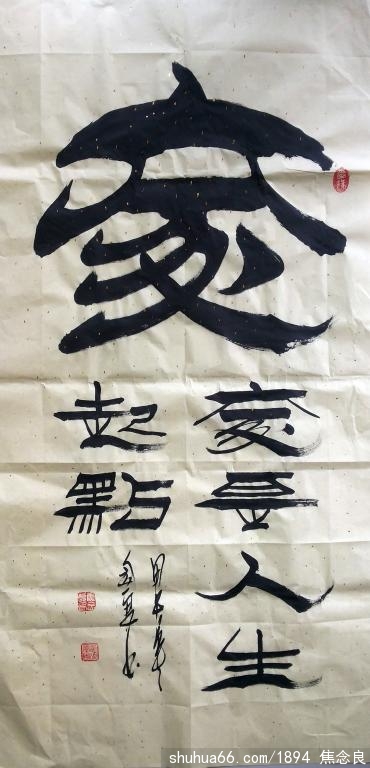 家
家是人生
起點
shuhua66.com/1894 焦念良